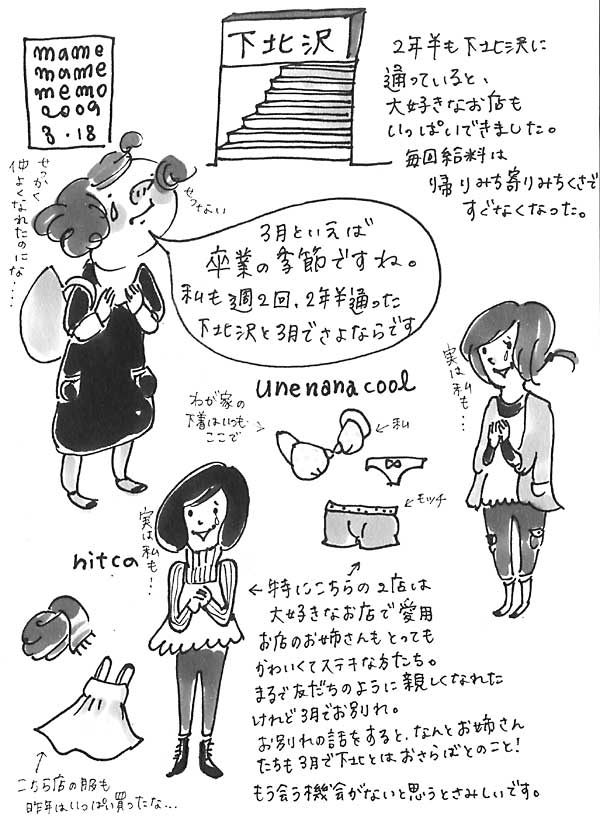 mame
mame
memo
2009
3.18
下北沢
2年半も下北沢に
通っていると、
大好きなお店も
いっぱいできました。
毎回給料は
帰りみち寄りみちくさで
すぐなくなった。
せっかく
仲よくなれたのにな・・・
せつない
3月といえば
卒業の季節ですね。
私も週2回、2年半通った
下北沢と3月でさよならです
unenanacool
わが家の
下着はいつも
ここで
私
モッチ
実は私も・・・
hitca
実は私も・・・
特にこちらの2店は
大好きなお店で愛用
お店のお姉さんもとっても
かわいくてステキな方たち。
まるで友だちのように親しくなれた
けれど3月でお別れ。
お別れの話をすると、なんとお姉さん
たちも3月で下北とはおさらばとのこと!
もう会う機会がないと思うとさみしいです。
こちら店の服も
昨年はいっぱい買ったな…